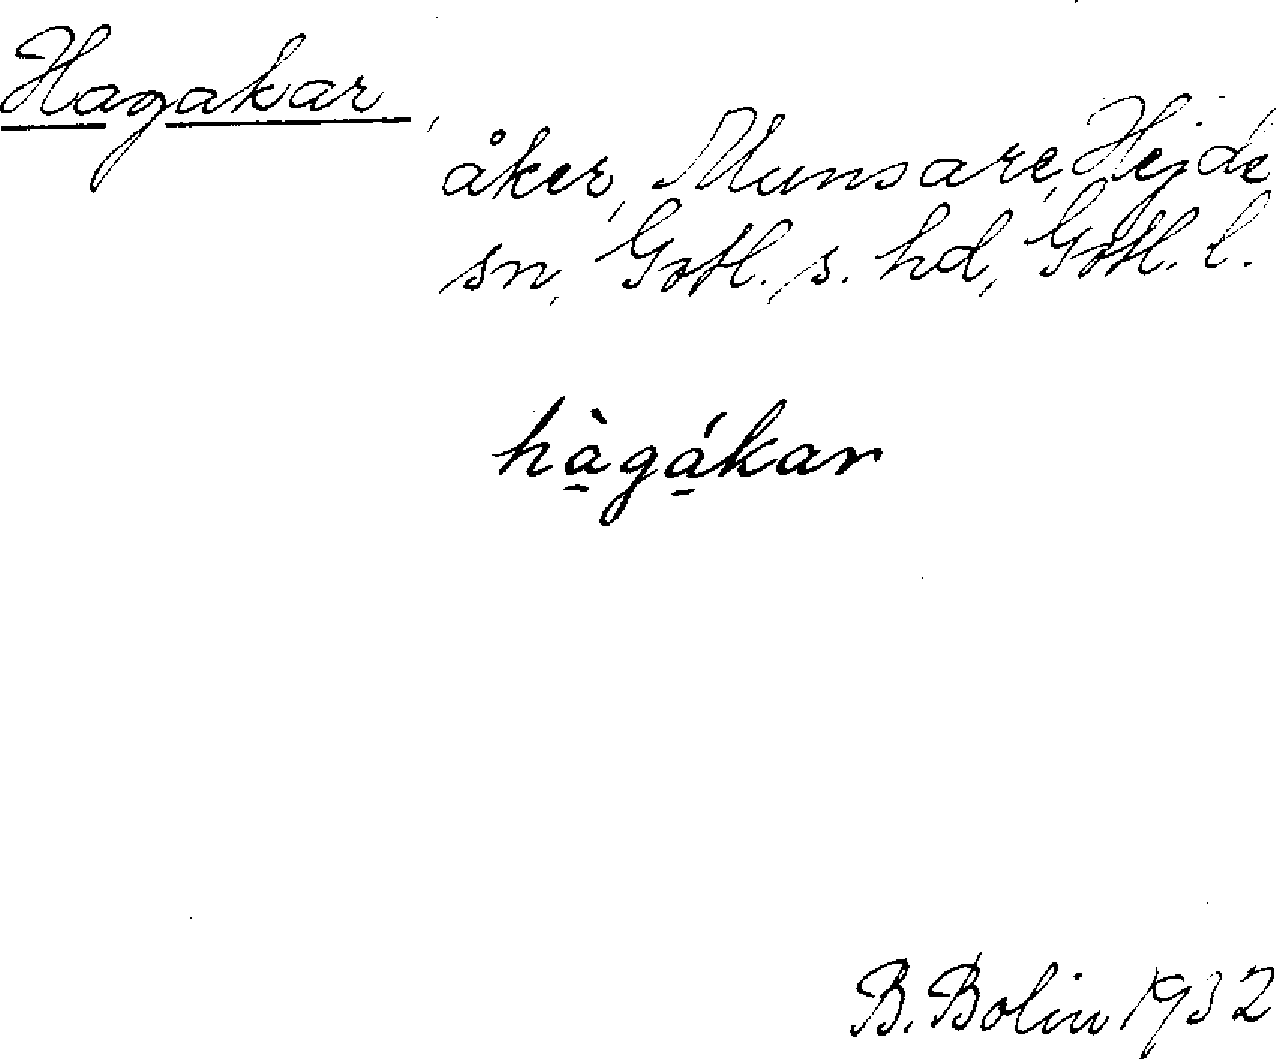 Hagakar,
åker, Munsare, Hejde
sn, Gotl. s. hd, Gotl. l.
hà̠gá̠kar
B. Bolin 1932